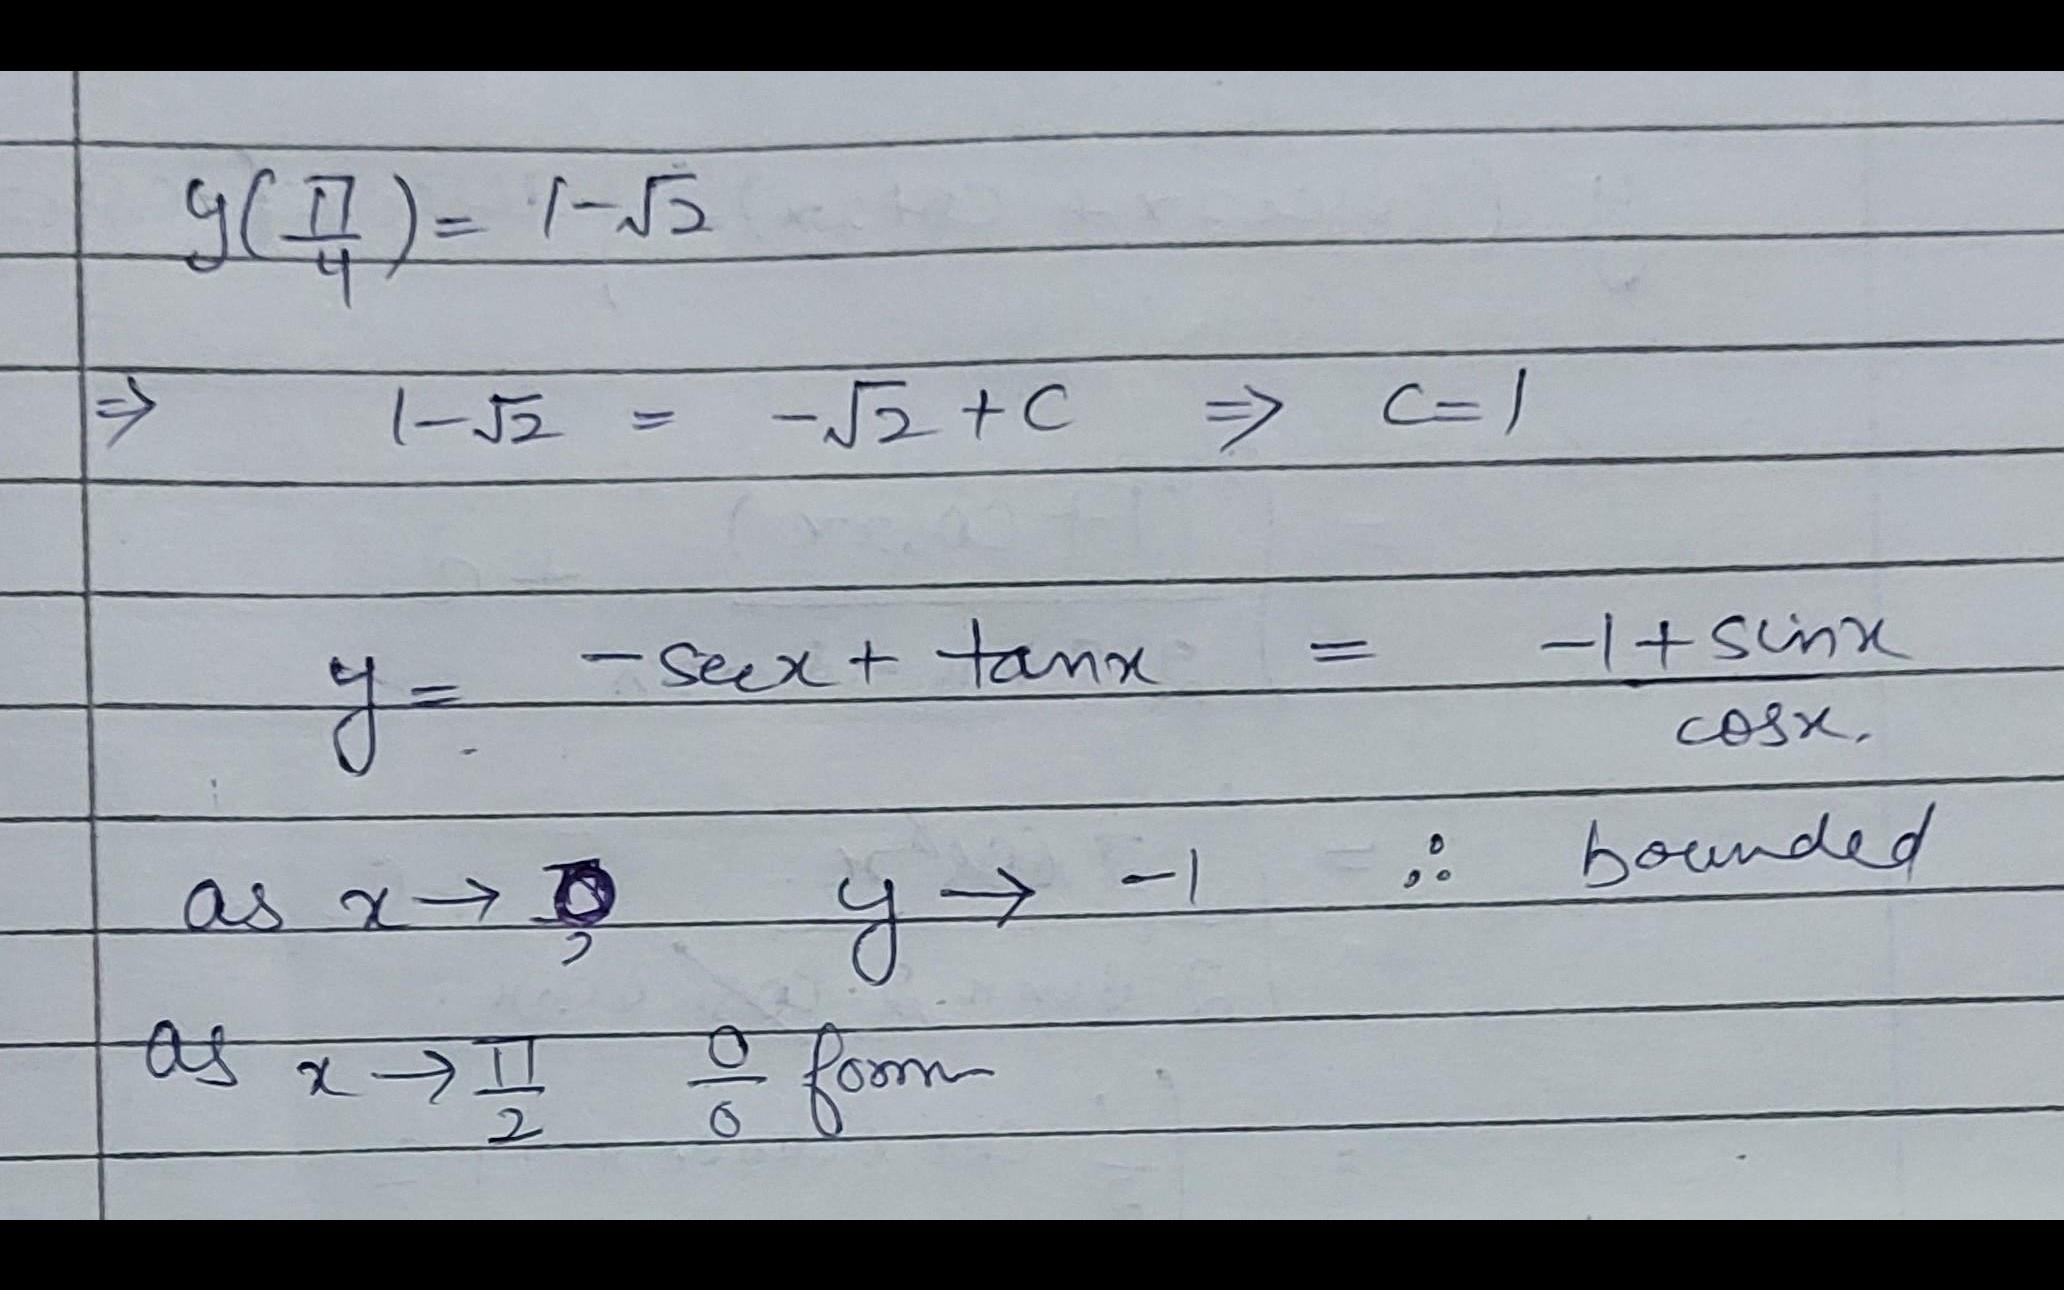 y(π/4) = 1-√2
⇒ 1-√2 = -√2 + C ⇒ C=1
y = -secx + tanx = (-1 + sinx)/cosx.
as x → 0, y → -1 ∴ bounded
as x → π/2 0/0 form